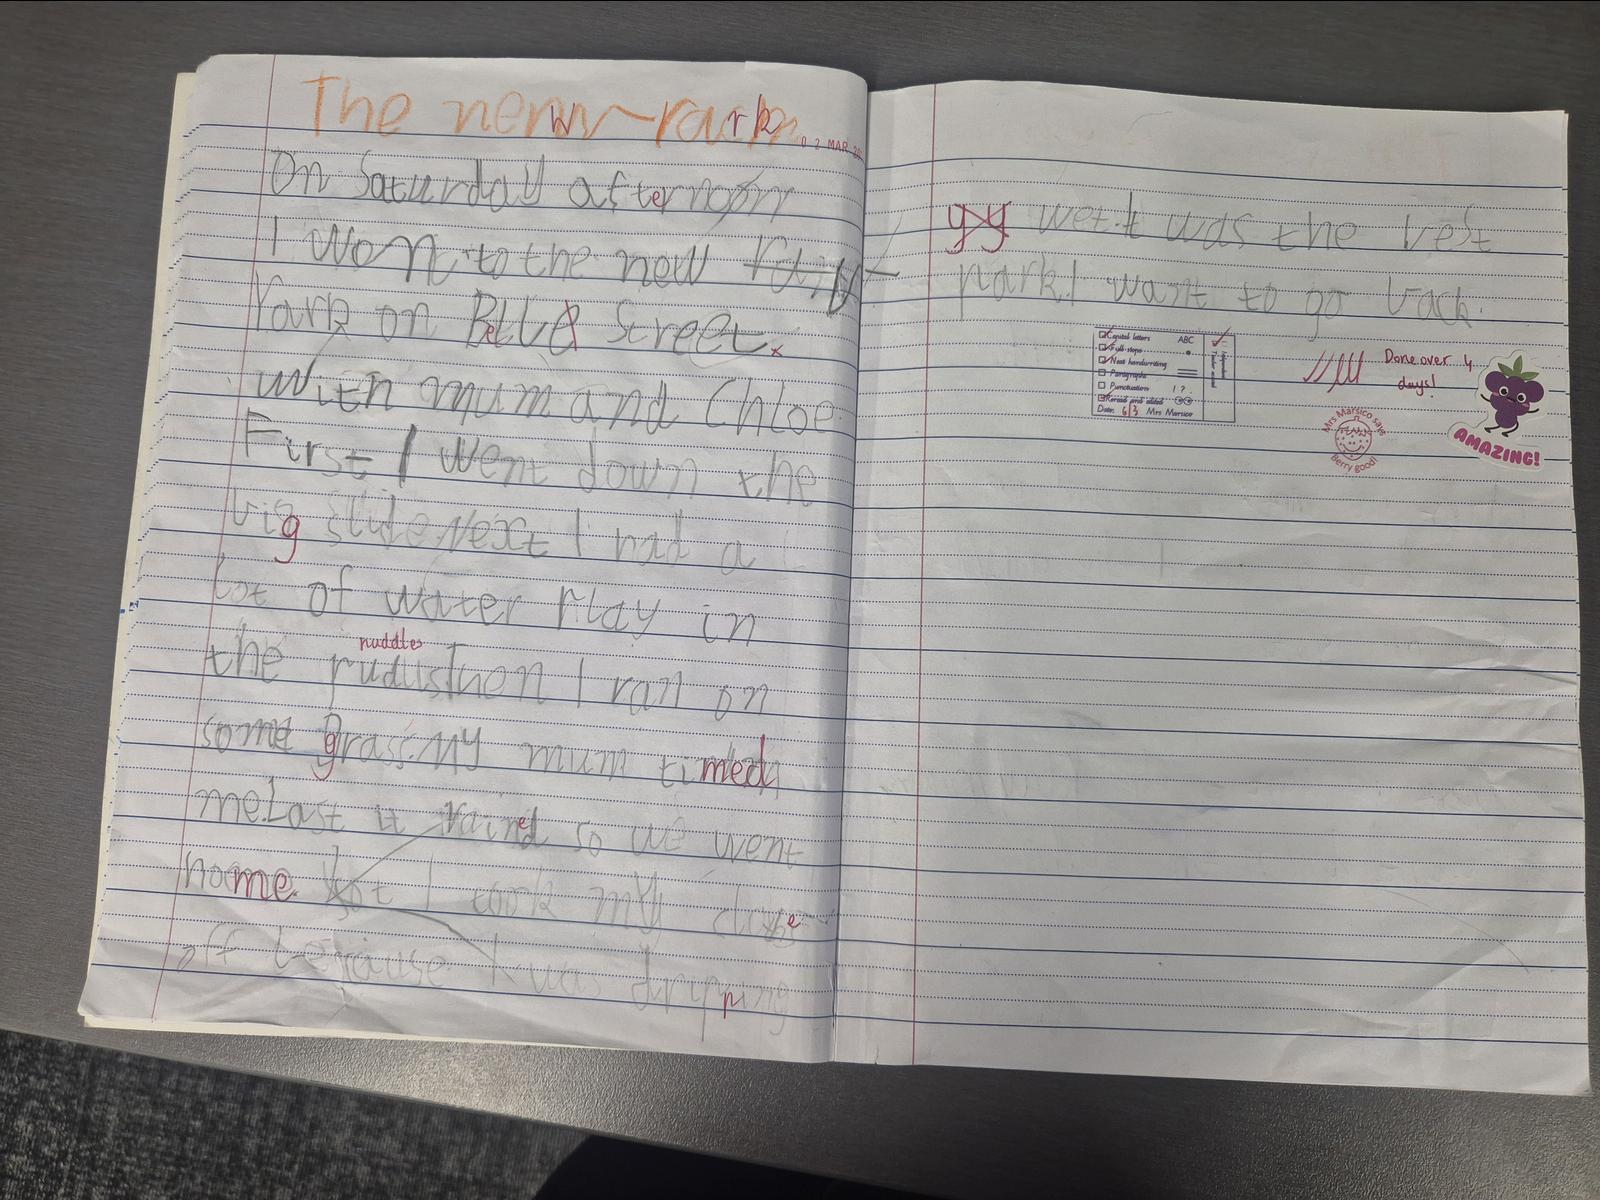 The new park
0 2 MAR
On Saturday afternoon
I went to the new
Park on Belle Street.
with mum and Chloe.
First I went down the
big slide. Next I had a
lot of water Play in
puddles
the pudlis Then I ran on
some grass. My mum timed
me. Last it rained so we went
home. I took my
off because I was dripping
wet. It was the best
park. I want to go back.
Capital letters ABC
Full stops
Neat handwriting
Paragraphs
Punctuation ! ?
Reread and edited
Date: 6/3 Mrs Marsico
Done over 4
days!
Mrs Marsico says
Berry good!
AMAZING!